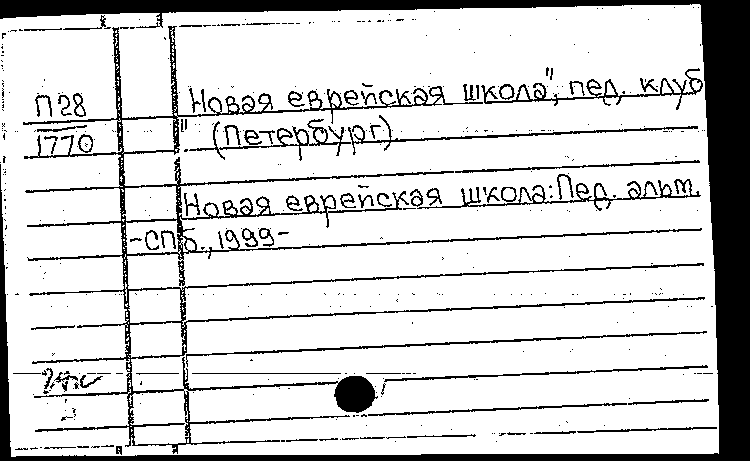 П28
1770
Новая еврейская школа", пед. клуб
" (Петербург)
Новая еврейская школа: Пед. альм.
-СПб., 1999-